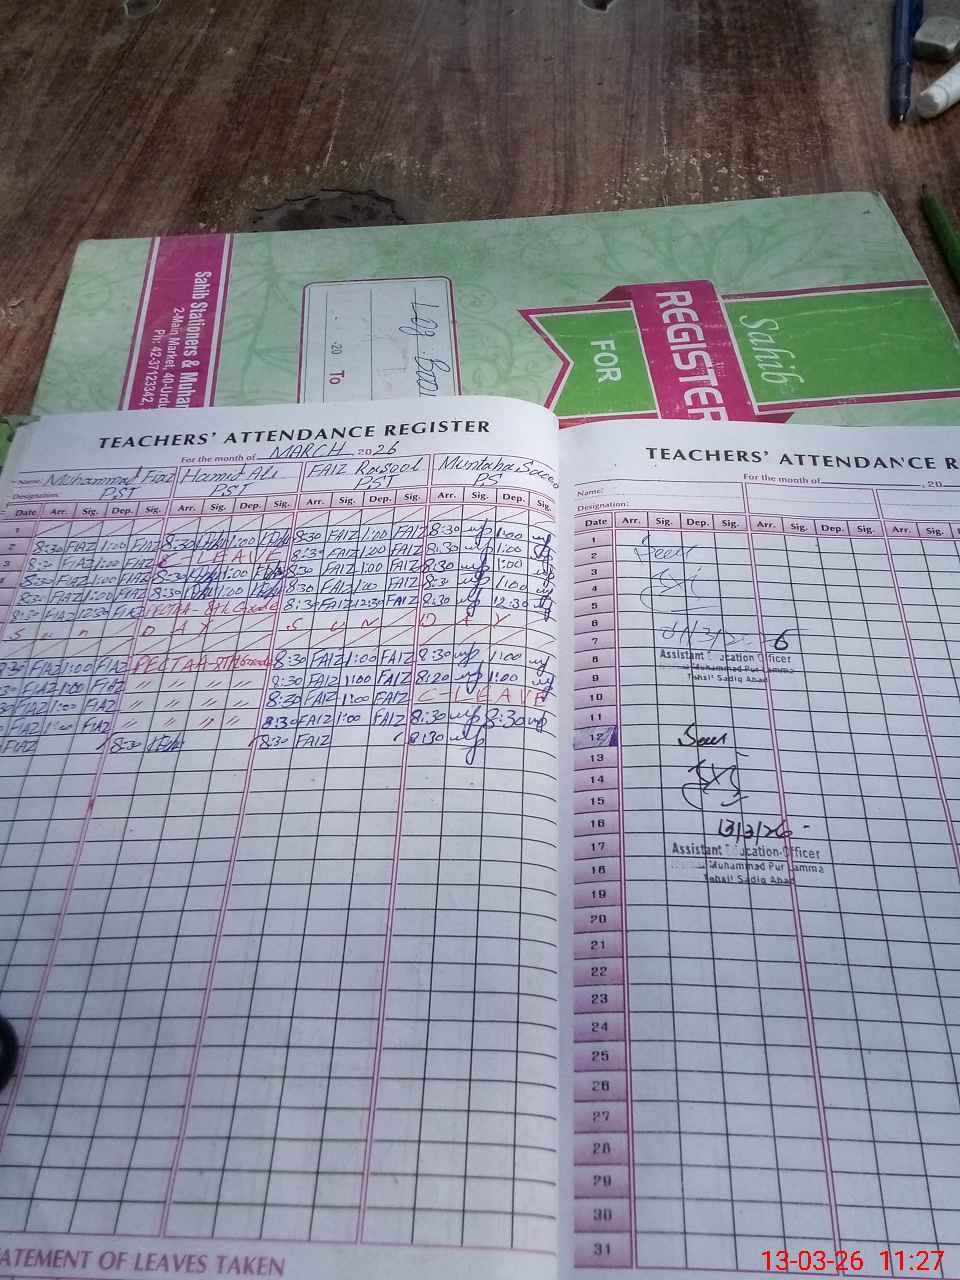 Sahib Stationers & Muham
2-Main Market, 40-Urdu
Ph: 42-37123342,
-20 To
Sahib
REGISTER
FOR
TEACHERS' ATTENDANCE REGISTER
For the month of MARCH 2026
Name: Muhammad Fiaz Hamid Ali FAIZ Rasool Muntaha
Designation: PST PST PST PS
Date Arr. Sig. Dep. Sig. Arr. Sig. Dep. Sig. Arr. Sig. Dep. Sig. Arr. Sig. Dep. Sig.
1
2 8:30 FIAZ 1:00 FIAZ 8:30 1:00 8:30 FAIZ 1:00 FAIZ 8:30 1:00
3 8:30 FIAZ 1:00 FIAZ C-LEAVE 8:30 FAIZ 1:00 FAIZ 8:30 1:00
8:30 FIAZ 1:00 FIAZ 8:30 1:00 8:30 FAIZ 1:00 FAIZ 8:30 1:00
8:30 FIAZ 1:00 FIAZ 8:30 1:00 8:30 FAIZ 1:00 FAIZ 8:30 1:00
8:30 FIAZ 12:30 FIAZ 8th Grade 8:30 FAIZ 12:30 FAIZ 8:30 12:30
S u n D A Y S U N D A Y
FIAZ 1:00 FIAZ PECTAA-8TH Grade 8:30 FAIZ 1:00 FAIZ 8:30 1:00
FIAZ 1:00 FIAZ " " " " 8:30 FAIZ 1:00 FAIZ 8:20 1:00
FIAZ 1:00 FIAZ " " " " 8:30 FAIZ 1:00 FAIZ C-LEAVE
FIAZ 1:00 FIAZ " " " " 8:30 FAIZ 1:00 FAIZ 8:30 8:30
FIAZ 8:30 8:30 FAIZ 8:30
ATEMENT OF LEAVES TAKEN
TEACHERS' ATTENDANCE R
For the month of 20
Name:
Designation:
Date Arr. Sig. Dep. Sig. Arr. Sig. Dep. Sig. Arr. Sig.
1
2
3
4
5
6
7
8 Assistant Education Officer
9 Muhammad Pur Lamma
Tehsil Sadiq Abad
10
11
12
13
14
15
16 13/3/26
17 Assistant Education Officer
18 Muhammad Pur Lamma
Tehsil Sadiq Abad
19
20
21
22
23
24
25
26
27
28
29
30
31
13-03-26 11:27